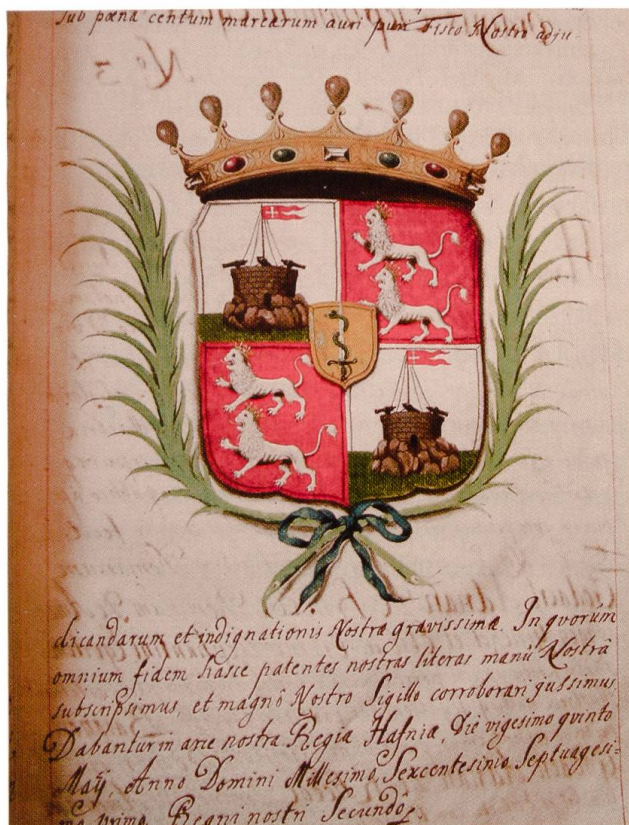 sub pœna centum marcarum auri puri Fisco Nostro adju-
No 3
dicandarum et indignationis Nostræ gravissimæ. In qvorum
omnium fidem hasce patentes nostras literas manû Nostrâ
subscripsimus, et magnô Nostro Sigillo corroborari jussimus
Dabantur in arce nostra Regia Hafniæ, Die vigesimo quinto
Maÿ, Anno Domini Millesimo, Sexcentesimo, Septuagesi-
mo primo, Regni nostri Secundô